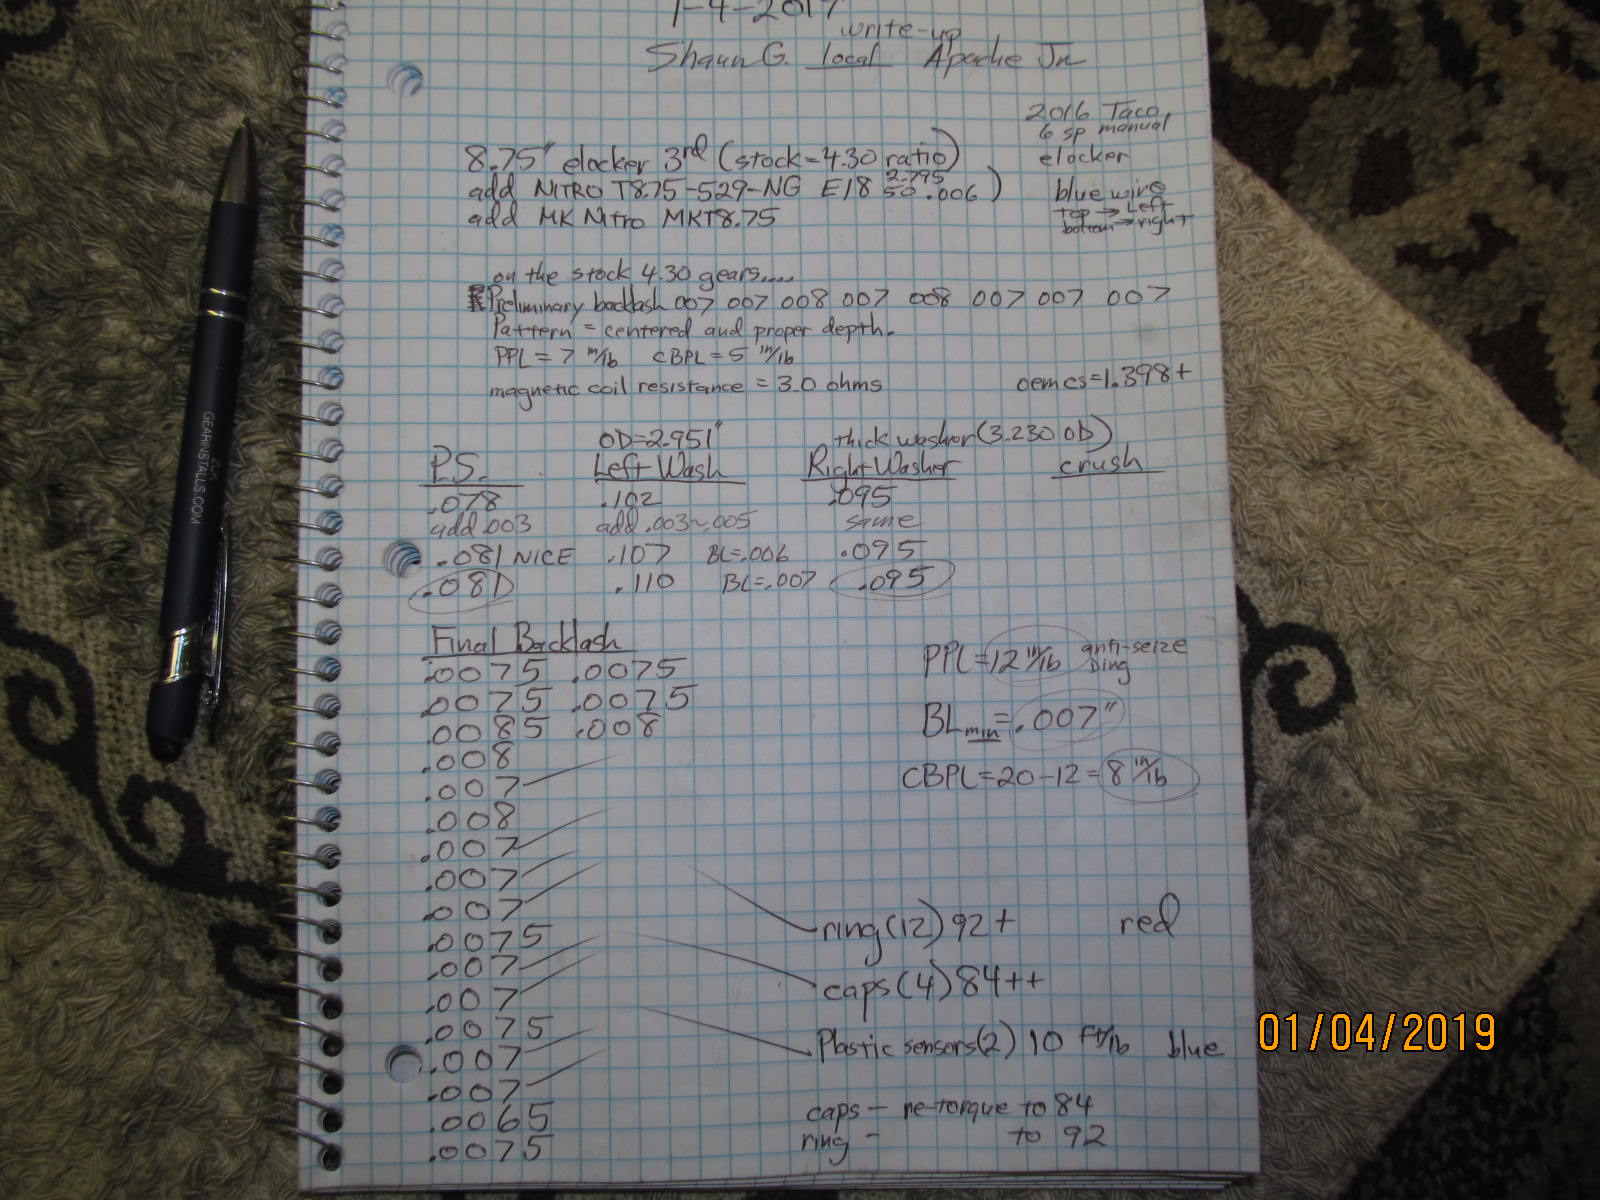 1-4-2019
write-up
Shaun G. local Apache Jn
2016 Taco
6 sp manual
elocker
8.75" elocker 3rd (stock=4.30 ratio)
add NITRO T8.75-529-NG E18 50 2.795 .006)
add MK Nitro MKT8.75
blue wire
top → Left
bottom → right
on the stock 4.30 gears....
Preliminary backlash 007 007 008 007 008 007 007 007
Pattern = centered and proper depth.
PPL = 7 in/lb CBPL = 5 in/lb
magnetic coil resistance = 3.0 ohms oem cs=1.398+
OD=2.951" thick washer (3.230 OD)
P.S. Left Wash Right Washer crush
.078 .102 .095
add .003 add .003~.005 same
.081 NICE .107 BL=.006 .095
.081 .110 BL=.007 .095
Final Backlash
.0075 .0075
.0075 .0075
.0085 .008
.008
.007
.008
.007
.007
.007
.0075
.007
.007
.0075
.007
.007
.0065
.0075
PPL=12 in/lb anti-seize
BLmin=.007"
CBPL=20-12=8 in/lb
ring (12) 92+ red
caps (4) 84++
Plastic sensors (2) 10 ft/lb blue
caps - re-torque to 84
ring - to 92
GEARINSTALLS.COM
01/04/2019